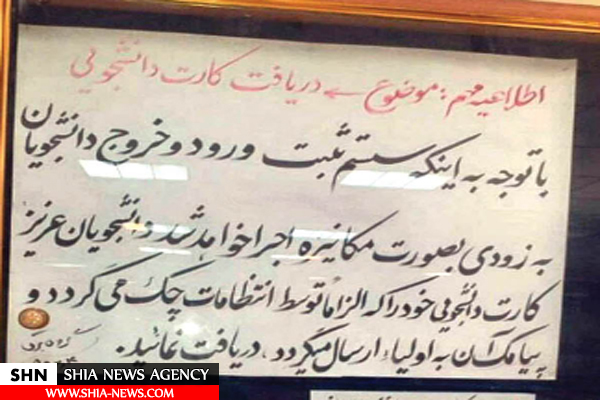 اطلاعیه مهم: موضوع ← دریافت کارت دانشجویی
با توجه به اینکه سیستم ثبت ورود و خروج دانشجویان
به زودی بصورت مکانیزه اجرا خواهد شد دانشجویان عزیز
کارت دانشجویی خود را که الزاماً توسط انتظامات چک می گردد و
پیامک آن به اولیاء ارسال میگردد، دریافت نمائید.
SHN SHIA NEWS AGENCY
WWW.SHIA-NEWS.COM